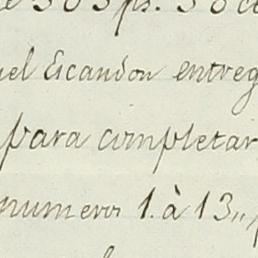 303 ps. 30
uel Escandon entreg
para completar
numeros 1. à 13,,